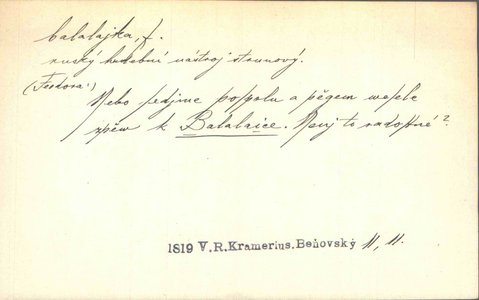 balalajka, f.
ruský hudební nástroj strunový.
(Feodora:)
Nebo seďjme pospolu a pěgem wesele
zpěw k Balalaice. Nenj to radostné?
1819 V.R.Kramerius.Beňovský II, 11.